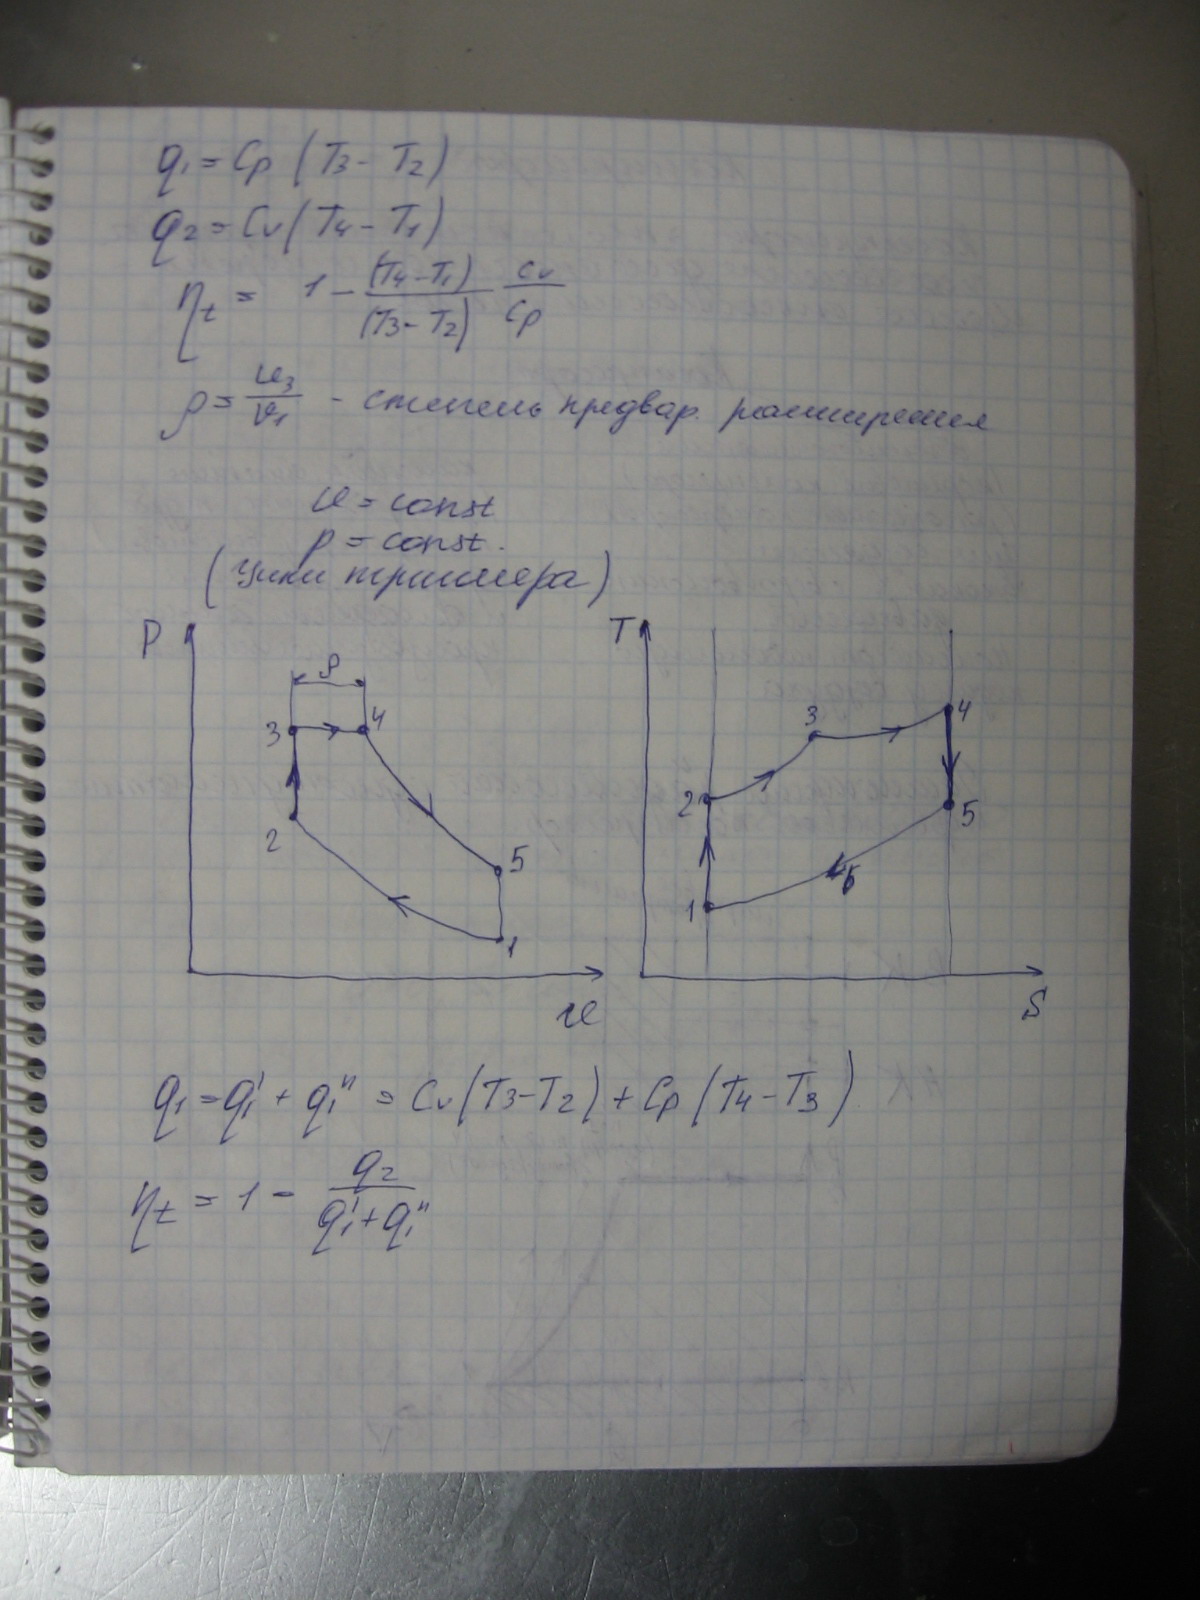 q₁ = Cp (T₃ - T₂)
q₂ = Cv (T₄ - T₁)
ηt = 1 - (T₄ - T₁) / (T₃ - T₂) Cv / Cp
ρ = v₃ / v₁ - степень предвар. расширения
v = const
p = const.
(Цикл тринклера)
P
ρ
3
4
2
5
1
v
T
4
3
2
5
1
S
q₁ = q₁' + q₁" = Cv (T₃ - T₂) + Cp (T₄ - T₃)
ηt = 1 - q₂ / q₁' + q₁"